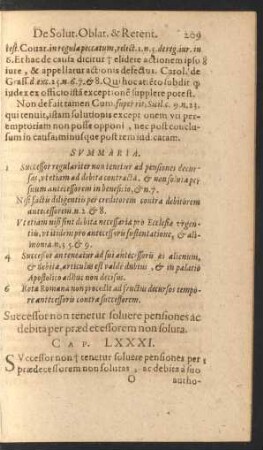 De Solut. Oblat. & Retent. 209
test. Couar. in regula peccatum, relect. 2. n. 5. de reg. iur. in
6. Et hac de causa dicitur † elidere actionem ipso 8
iure, & appellatur actionis defectus. Carol. de
Grass. n. 6. 7. & 8. Qui hoc at. ēto subdit ꝙ
iudex ex officio istā exceptionē supplere potest.
Non defuit tamen Cum. super rir. n. 23.
qui tenuit, istam solutionis exceptionem vti per-
emptoriam non posse opponi, nec post conclu-
sum in causa, minusque post rem iudicatam.
SVMMARIA.
1 Successor regulariter non tenetur ad pensiones decur-
sas, vt etiam ad debita contracta, & non soluta per
suum antecessorem in beneficio, & n. 7.
Nisi factis diligentiis per creditorem contra debitorem
antecessorem. n. 2 & 8.
Vt etiam nisi sint debita necessaria pro Ecclesia
tis, vti itidem pro antecessoris sustentatione, & ali-
monia. n. 3 5 & 9.
4 Successor an teneatur ad sui antecessoris æs alienum,
& debita, articulus est valde dubius, & in palatio
Apostolico adhuc non decisus.
6 Rota Romana non procedit ad fructus decursos tempo-
re antecessoris contra successorem.
Successor non tenetur soluere pensiones ac
debita per prædecessorem non soluta.
CAP. LXXXI.
SVccessor non † tenetur soluere pensiones per 1
prædecessorem non solutas, ac debita à suo
O autho-